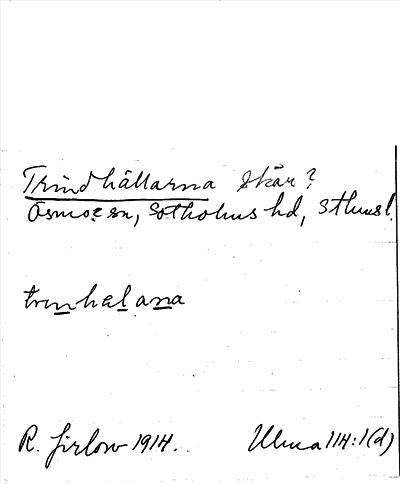 Trindhällarna skär?
Ösmo sn, Sotholms hd, Sthmsl.
trinhelana
R. Jirlow 1914. Ulma 114:1(d)